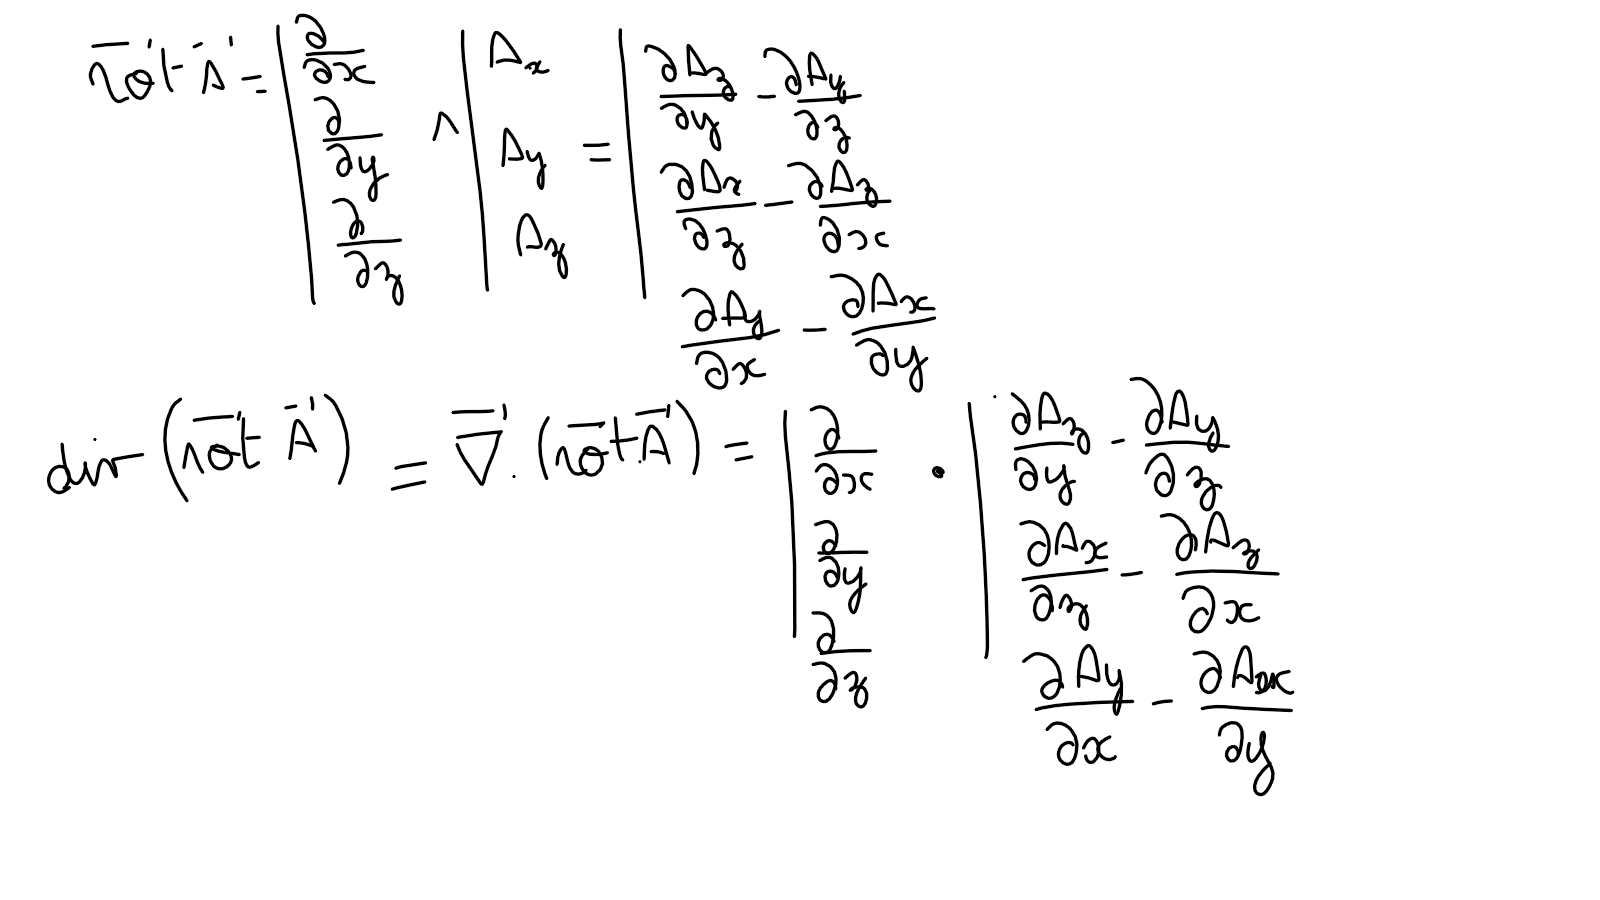 $\overrightarrow{rot}\ \vec{A} = \begin{vmatrix} \frac{\partial}{\partial x} \\ \frac{\partial}{\partial y} \\ \frac{\partial}{\partial z} \end{vmatrix. \wedge \begin{vmatrix} A_x \\ A_y \\ A_z \end{vmatrix. = \begin{vmatrix} \frac{\partial A_z}{\partial y} - \frac{\partial A_y}{\partial z} \\ \frac{\partial A_x}{\partial z} - \frac{\partial A_z}{\partial x} \\ \frac{\partial A_y}{\partial x} - \frac{\partial A_x}{\partial y} \end{vmatrix.$
$div (\overrightarrow{rot}\ \vec{A}) = \vec{\nabla} . (\overrightarrow{rot}\ \vec{A}) = \begin{vmatrix} \frac{\partial}{\partial x} \\ \frac{\partial}{\partial y} \\ \frac{\partial}{\partial z} \end{vmatrix. \cdot \begin{vmatrix} \frac{\partial A_z}{\partial y} - \frac{\partial A_y}{\partial z} \\ \frac{\partial A_x}{\partial z} - \frac{\partial A_z}{\partial x} \\ \frac{\partial A_y}{\partial x} - \frac{\partial A_x}{\partial y} \end{vmatrix.$